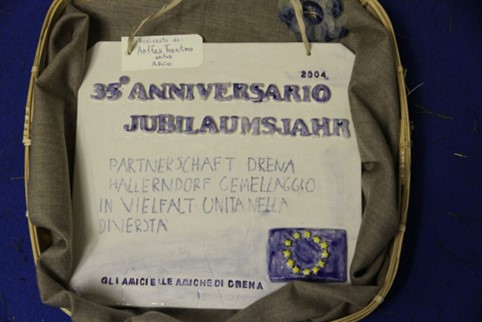 Realizzato da:
Anffas Trentino
onlus
ARCO
2004
35° ANNIVERSARIO
JUBILAUMSJAHR
PARTNERSCHAFT DRENA
HALLERNDORF GEMELLAGGIO
IN VIELFALT UNITA NELLA
DIVERSTA
GLI AMICI E LLE AMICHE DI DRENA